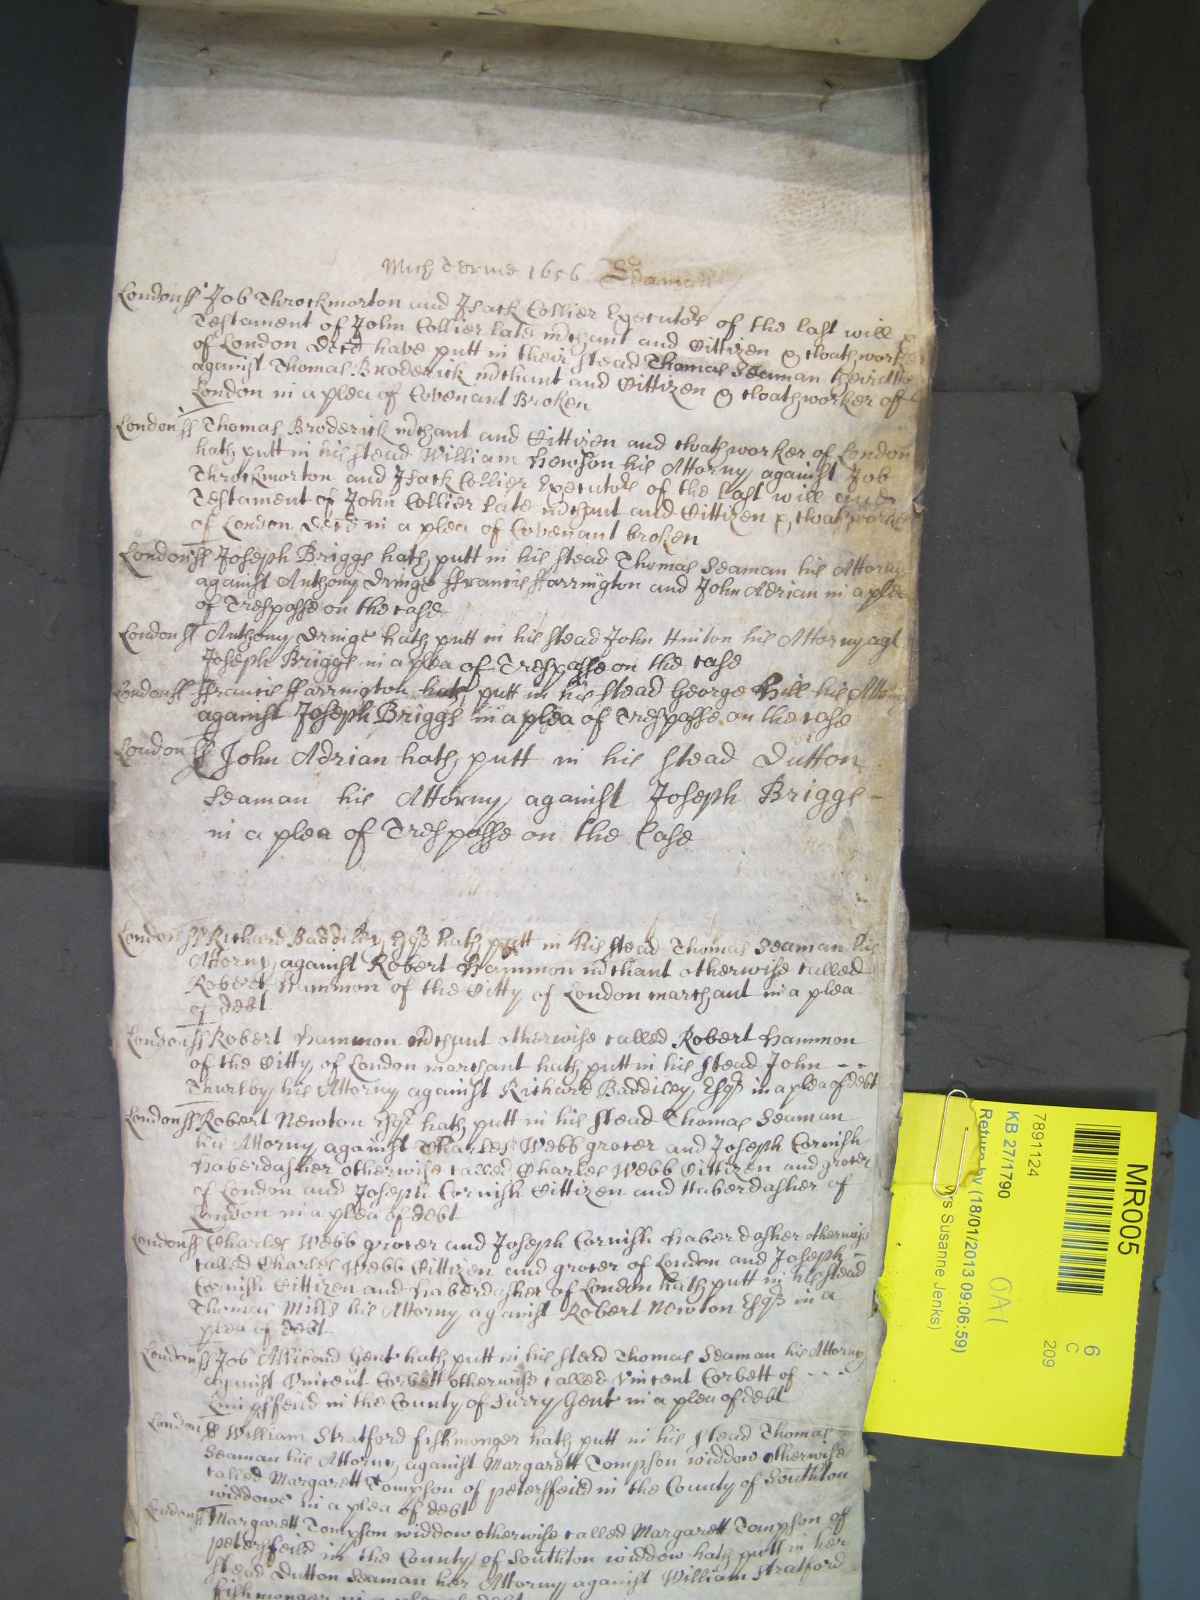 Mich Terme 1656 Seaman
London ss Job Throckmorton and Isack Collier Executors of the last will &
Testament of John Collier late mchant and Cittizen & cloathworker
of London decd have putt in their stead Thomas Seaman their Atto
against Thomas Broderick mchant and Cittizen & cloathworker of
London in a plea of Covenant Broken
London ss Thomas Broderick mchant and Cittizen and cloathworker of London
hath putt in his stead William Hewson his Attorny against Job
Throckmorton and Isack Collier Executors of the last will and
Testament of John Collier late mchant and Cittizen & cloathworker
of London decd in a plea of Covenant broken
London ss Joseph Briggs hath putt in his stead Thomas Seaman his Attorny
against Anthony Dringe ffrancis ffarrington and John Adrian in a plea
of Trespasse on the case
London ss Anthony Dringe hath putt in his stead John Hinton his Attorny agt
Joseph Briggs in a plea of Trespasse on the case
London ss ffrancis ffarrington hath putt in his stead George Hill his Attorny
against Joseph Briggs in a plea of Trespasse on the case
London ss John Adrian hath putt in his stead Dutton
Seaman his Attorny against Joseph Briggs -
in a plea of Trespasse on the Case
London ss Richard Baddiley Esqr hath putt in his stead Thomas Seaman his
Attorny against Robert Hammon mchant otherwise called
Robert Hammon of the Citty of London marchant in a plea
of debt
London ss Robert Hammon mchant otherwise called Robert Hammon
of the Citty of London marchant hath putt in his stead John - -
Thurlby his Attorny against Richard Baddiley Esqr in a plea of debt
London ss Robert Newton Esqr hath putt in his stead Thomas Seaman
his Attorny against Charles Webb grocer and Joseph Cornish
haberdasher otherwise called Charles Webb Cittizen and grocer
of London and Joseph Cornish Cittizen and Haberdasher of
London in a plea of debt
London ss Charles Webb grocer and Joseph Cornish haberdasher otherwise
called Charles Webb Cittizen and grocer of London and Joseph -
Cornish Cittizen and haberdasher of London hath putt in his stead
Thomas Mills his Attorny against Robert Newton Esqr in a
plea of debt
London ss Job Allibond Gent hath putt in his stead Thomas Seaman his Attorny
against Vincent Corbett otherwise called Vincent Corbett of - - -
in the County of Surry Gent in a plea of debt
London ss William Stratford fishmonger hath putt in his stead Thomas
Seaman his Attorny against Margarett Tompson widdow otherwise
called Margarett Tompson of petersfeild in the County of Southton
widdowe in a plea of debt
London ss Margarett Tompson widdow otherwise called Margarett Tompson of
petersfeild in the County of Southton widdow hath putt in her
stead Dutton Seaman her Attorny against William Stratford
fishmonger in a plea of debt
MR005
6
C
209
7891124
KB 27/1790
OA1
Return by (18/01/2013 09:06:59)
Mrs Susanne Jenks)